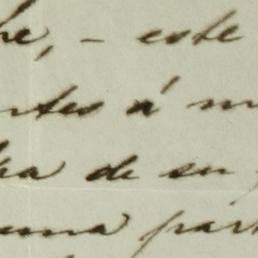 re, - este
rtes á m
ha de su
una par